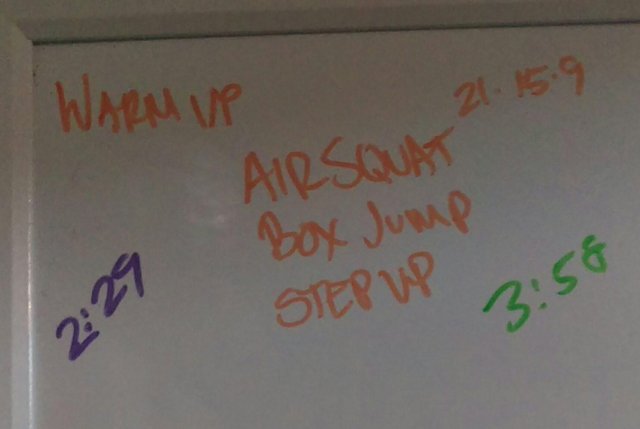 WARM UP 21·15·9
AIR SQUAT
BOX JUMP
STEP UP
2:29
3:58